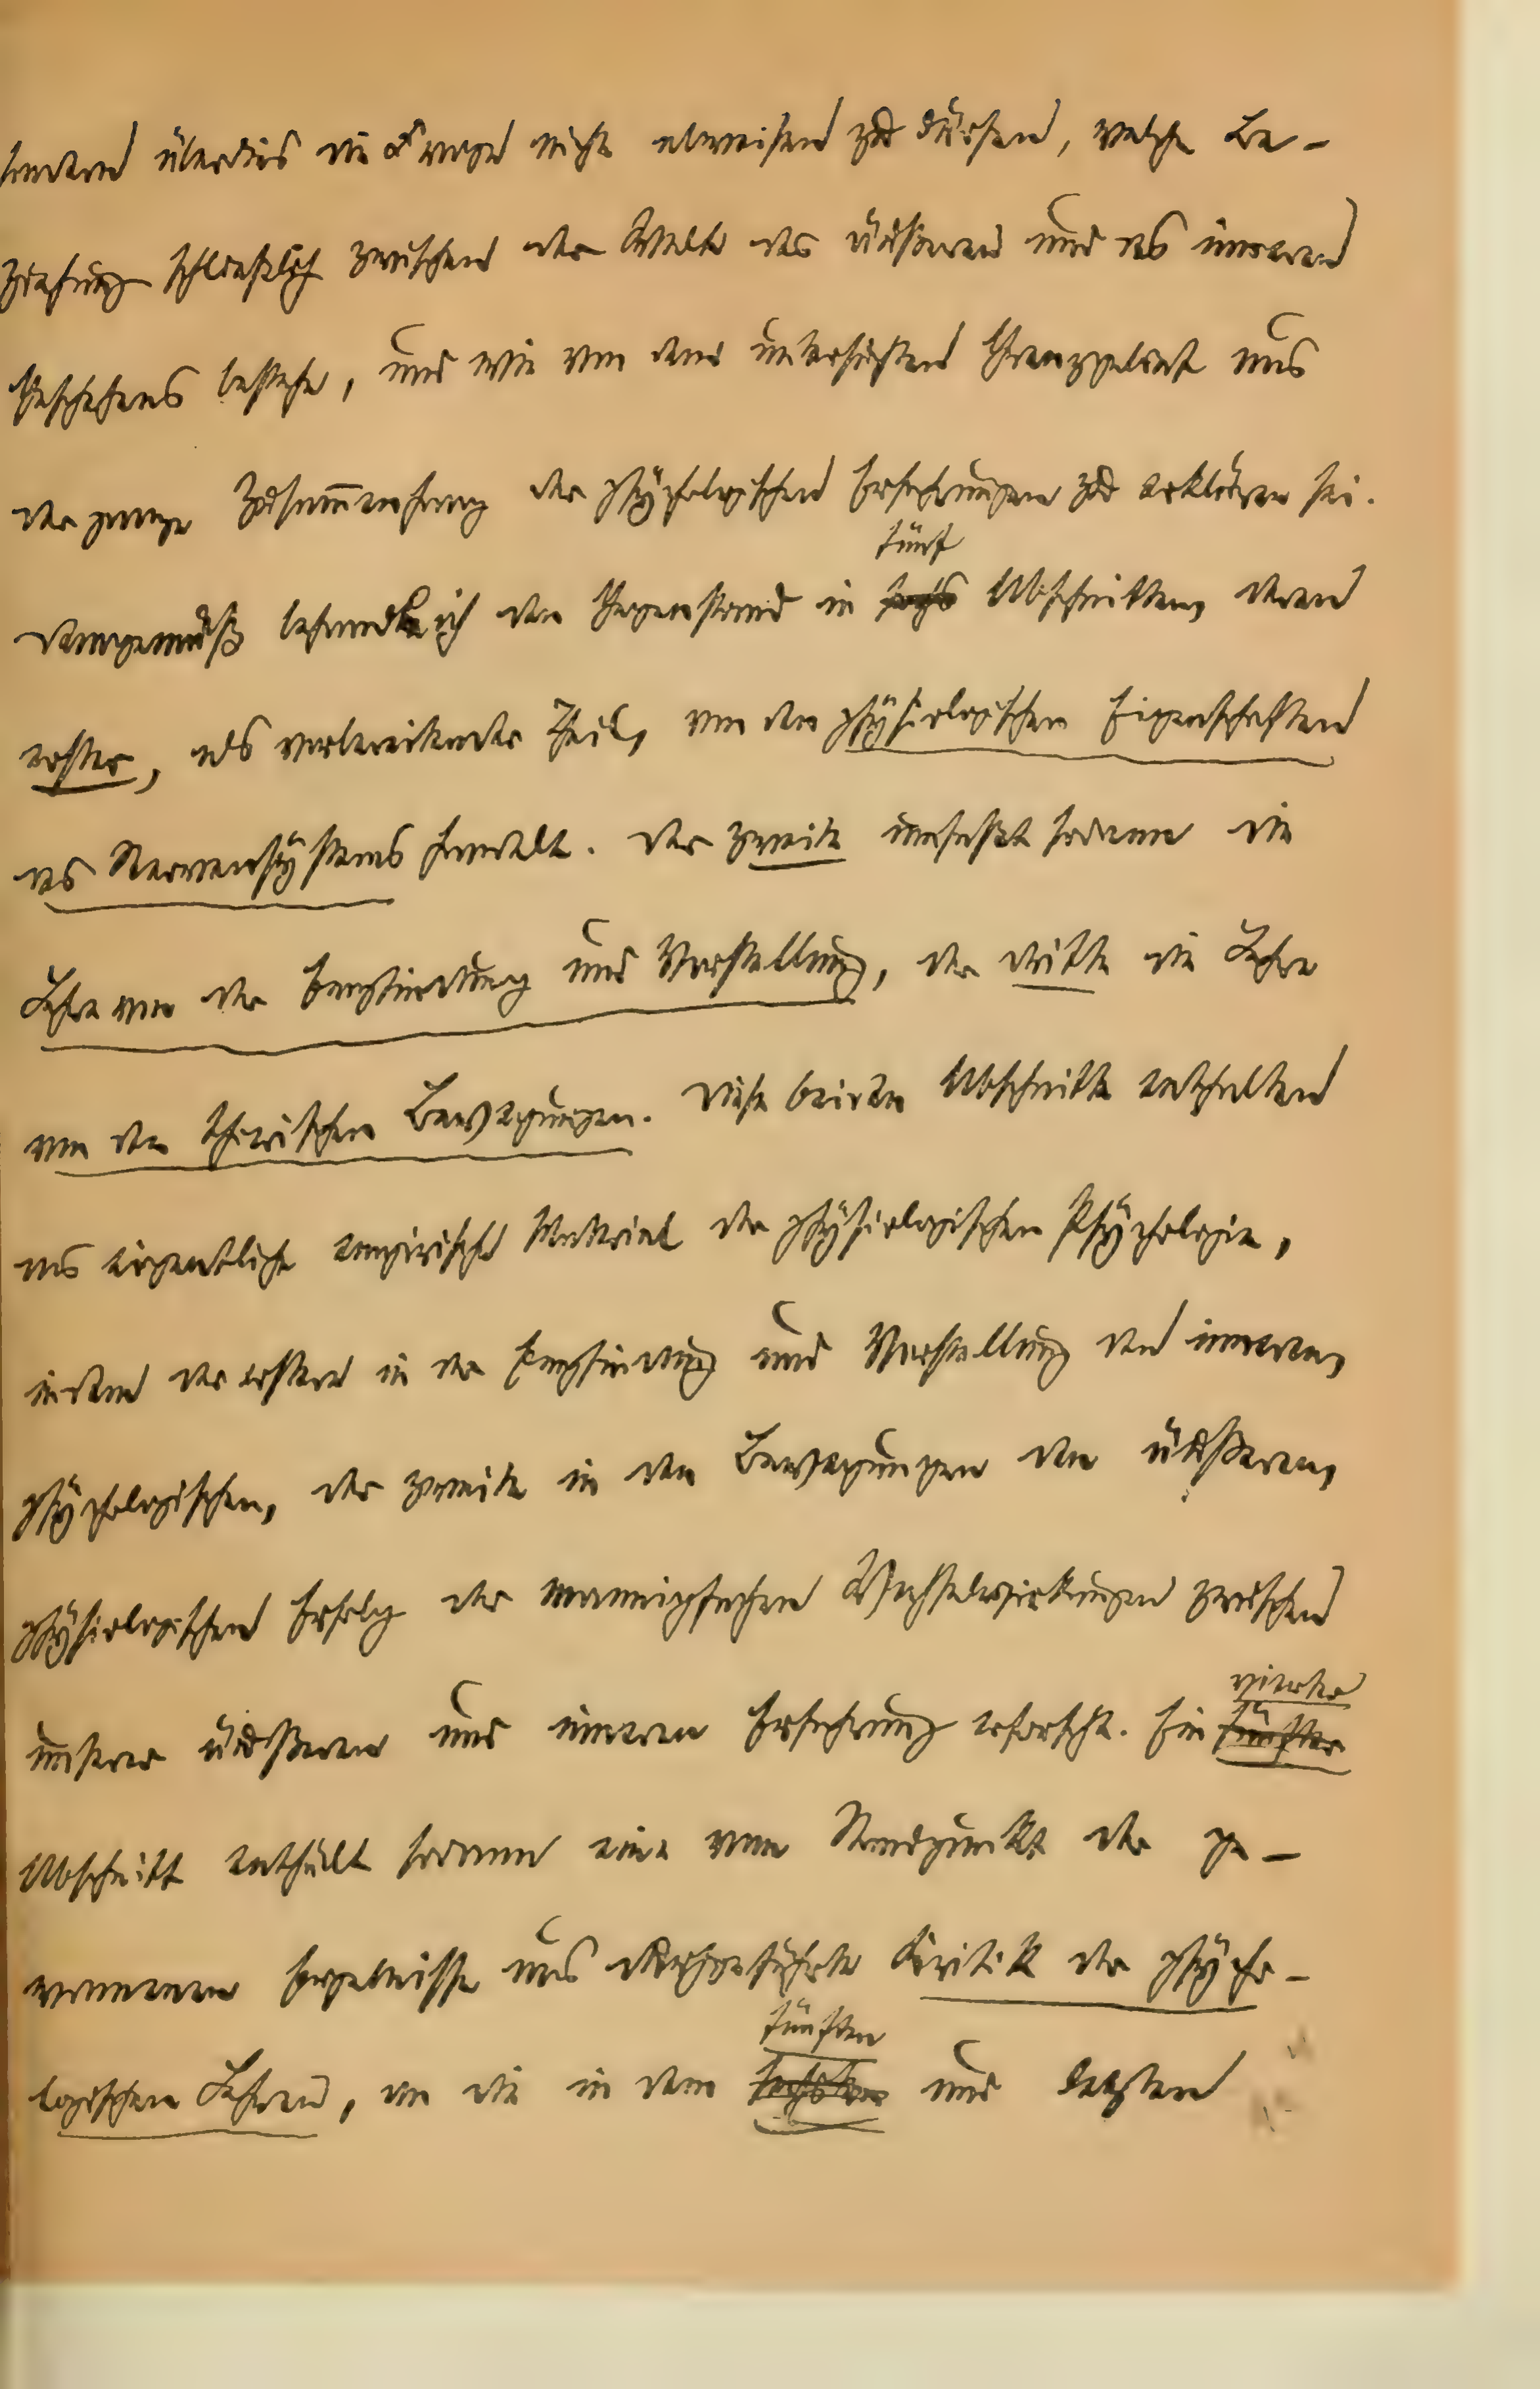 sondern überdies die Frage nicht abweisen zu dürfen, welche Be-
ziehung schließlich zwischen der Welt des äußeren und des inneren
Geschehens bestehe, und wie von dem untersuchten Grenzgebiet aus
der ganze Zusammenhang der psychologischen Erfahrungen zu erklären sei.
fünf
Demgemäß behandle ich den Gegenstand in sechs Abschnitten, deren
erster, als vorbereitender Theil, von den physiologischen Eigenschaften
des Nervensystems handelt. Der zweite umfaßt sodann die
Lehre von der Empfindung und Vorstellung, der dritte die Lehre
von den thierischen Bewegungen. Diese beiden Abschnitte enthalten
das eigentliche empirische Material der physiologischen Psychologie,
indem der erstere in der Empfindung und Vorstellung den inneren,
psychologischen, der zweite in den Bewegungen den äußeren,
physiologischen Erfolg der mannigfachen Wechselwirkungen zwischen
vierter
unserer äußeren und inneren Erfahrung erforscht. Ein fünfter
Abschnitt enthält sodann eine vom Standpunkt der ge-
wonnenen Ergebnisse aus durchgeführte Kritik der psycho-
fünften
logischen Lehren, an die in dem sechsten und letzten